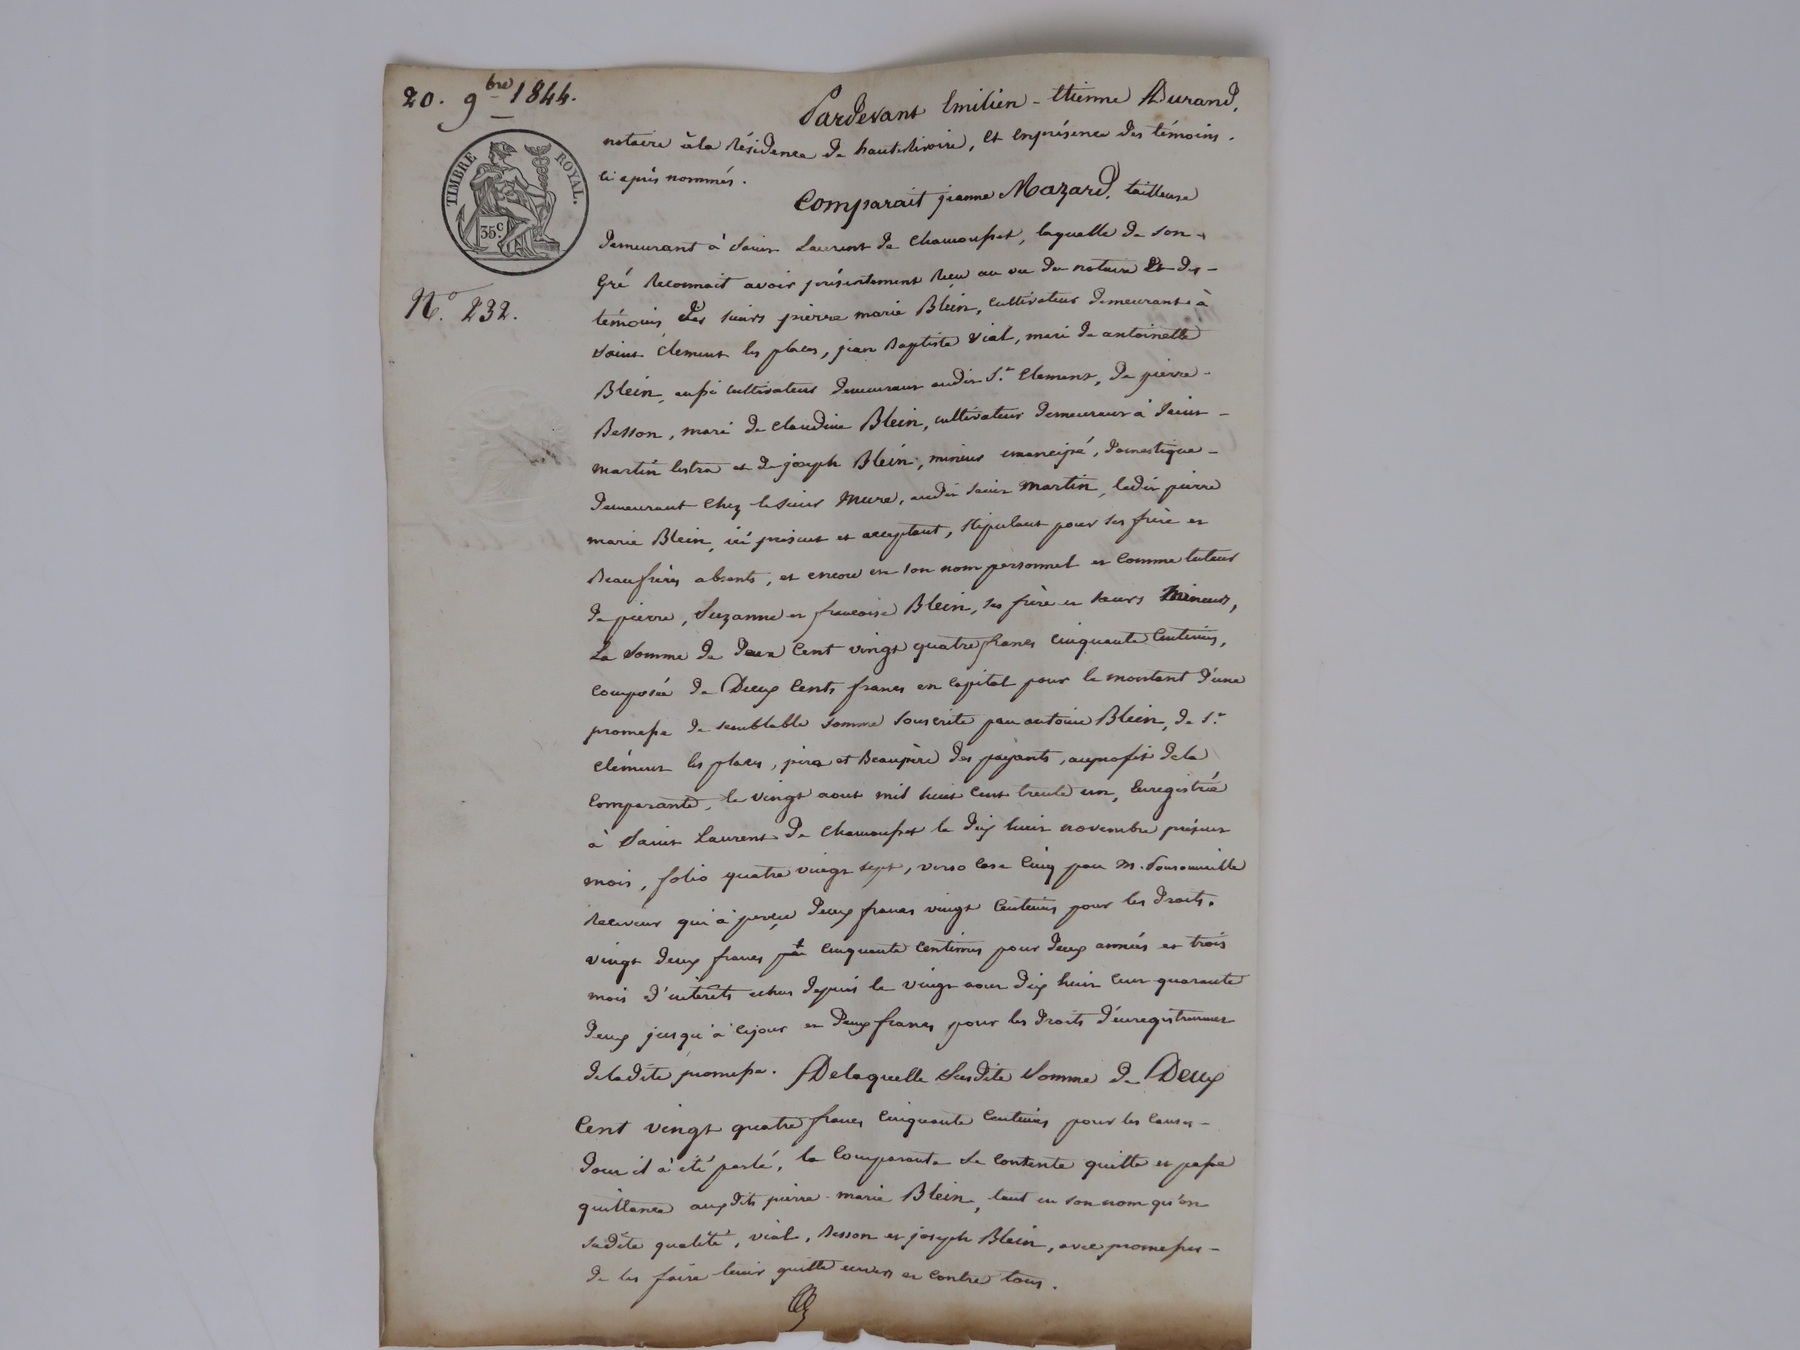 20. 9bre 1844.
TIMBRE ROYAL.
35c.
No. 232.
Pardevant Emilien - Etienne Durand,
notaire à la Résidence de hauterivoire, Et en présence des témoins
ci après nommés.
Comparait jeanne Mazard, tailleuse
demeurant à Saint Laurent de Chamousset, laquelle de son
Gré Reconnait avoir présentement Reçu au vu du notaire Et des
témoins des sieurs pierre marie Blein, cultivateur demeurant à
Saint Clement les places, jean Baptiste Vial, mari de antoinette
Blein, aussi cultivateur demeurant audit St. Clement, de pierre
Besson, mari de Claudine Blein, cultivateur demeurant à Saint
martin lestra et de joseph Blein, mineur emancipé, domestique
demeurant chez le sieur Mure, audit saint martin, ledit pierre
marie Blein, ici présent et acceptant, stipulant pour ses frère et
Beaufrères absents, et encore en son nom personnel et comme tuteur
de pierre, Suzanne et francoise Blein, ses frère et sœurs Mineurs,
La Somme de deux Cent vingt quatre francs cinquante Centimes,
composée de Deux Cents francs en Capital pour le montant d'une
promesse de semblable somme souscrite par antoine Blein, de St.
Clément les places, père et Beaupère des payants, au profit de la
Comparante, le vingt aout mil huit Cent trente un, Enregistrée
à Saint Laurent de Chamousset le dix huit novembre présent
mois, folio quatre vingt sept, verso Case Cinq par M.
Receveur qui à perçu deux francs vingt Centimes pour les droits.
vingt deux francs cinquante centimes pour deux années et trois
mois d'intérêts echus depuis le vingt aout dix huit Cent quarante
deux jusqu'à cejour et deux francs pour les droits d'enregistrement
deladite promesse. Delaquelle susdite Somme de Deux
Cent vingt quatre francs Cinquante Centimes pour les causes
dont il à été parlé, la Comparante se Contente quitte et passe
quittance auxdits pierre - marie Blein, tant en son nom qu'en
sadite qualité, Vial, Besson et joseph Blein, avec promesses
de les faire tenir quitte envers et Contre tous.